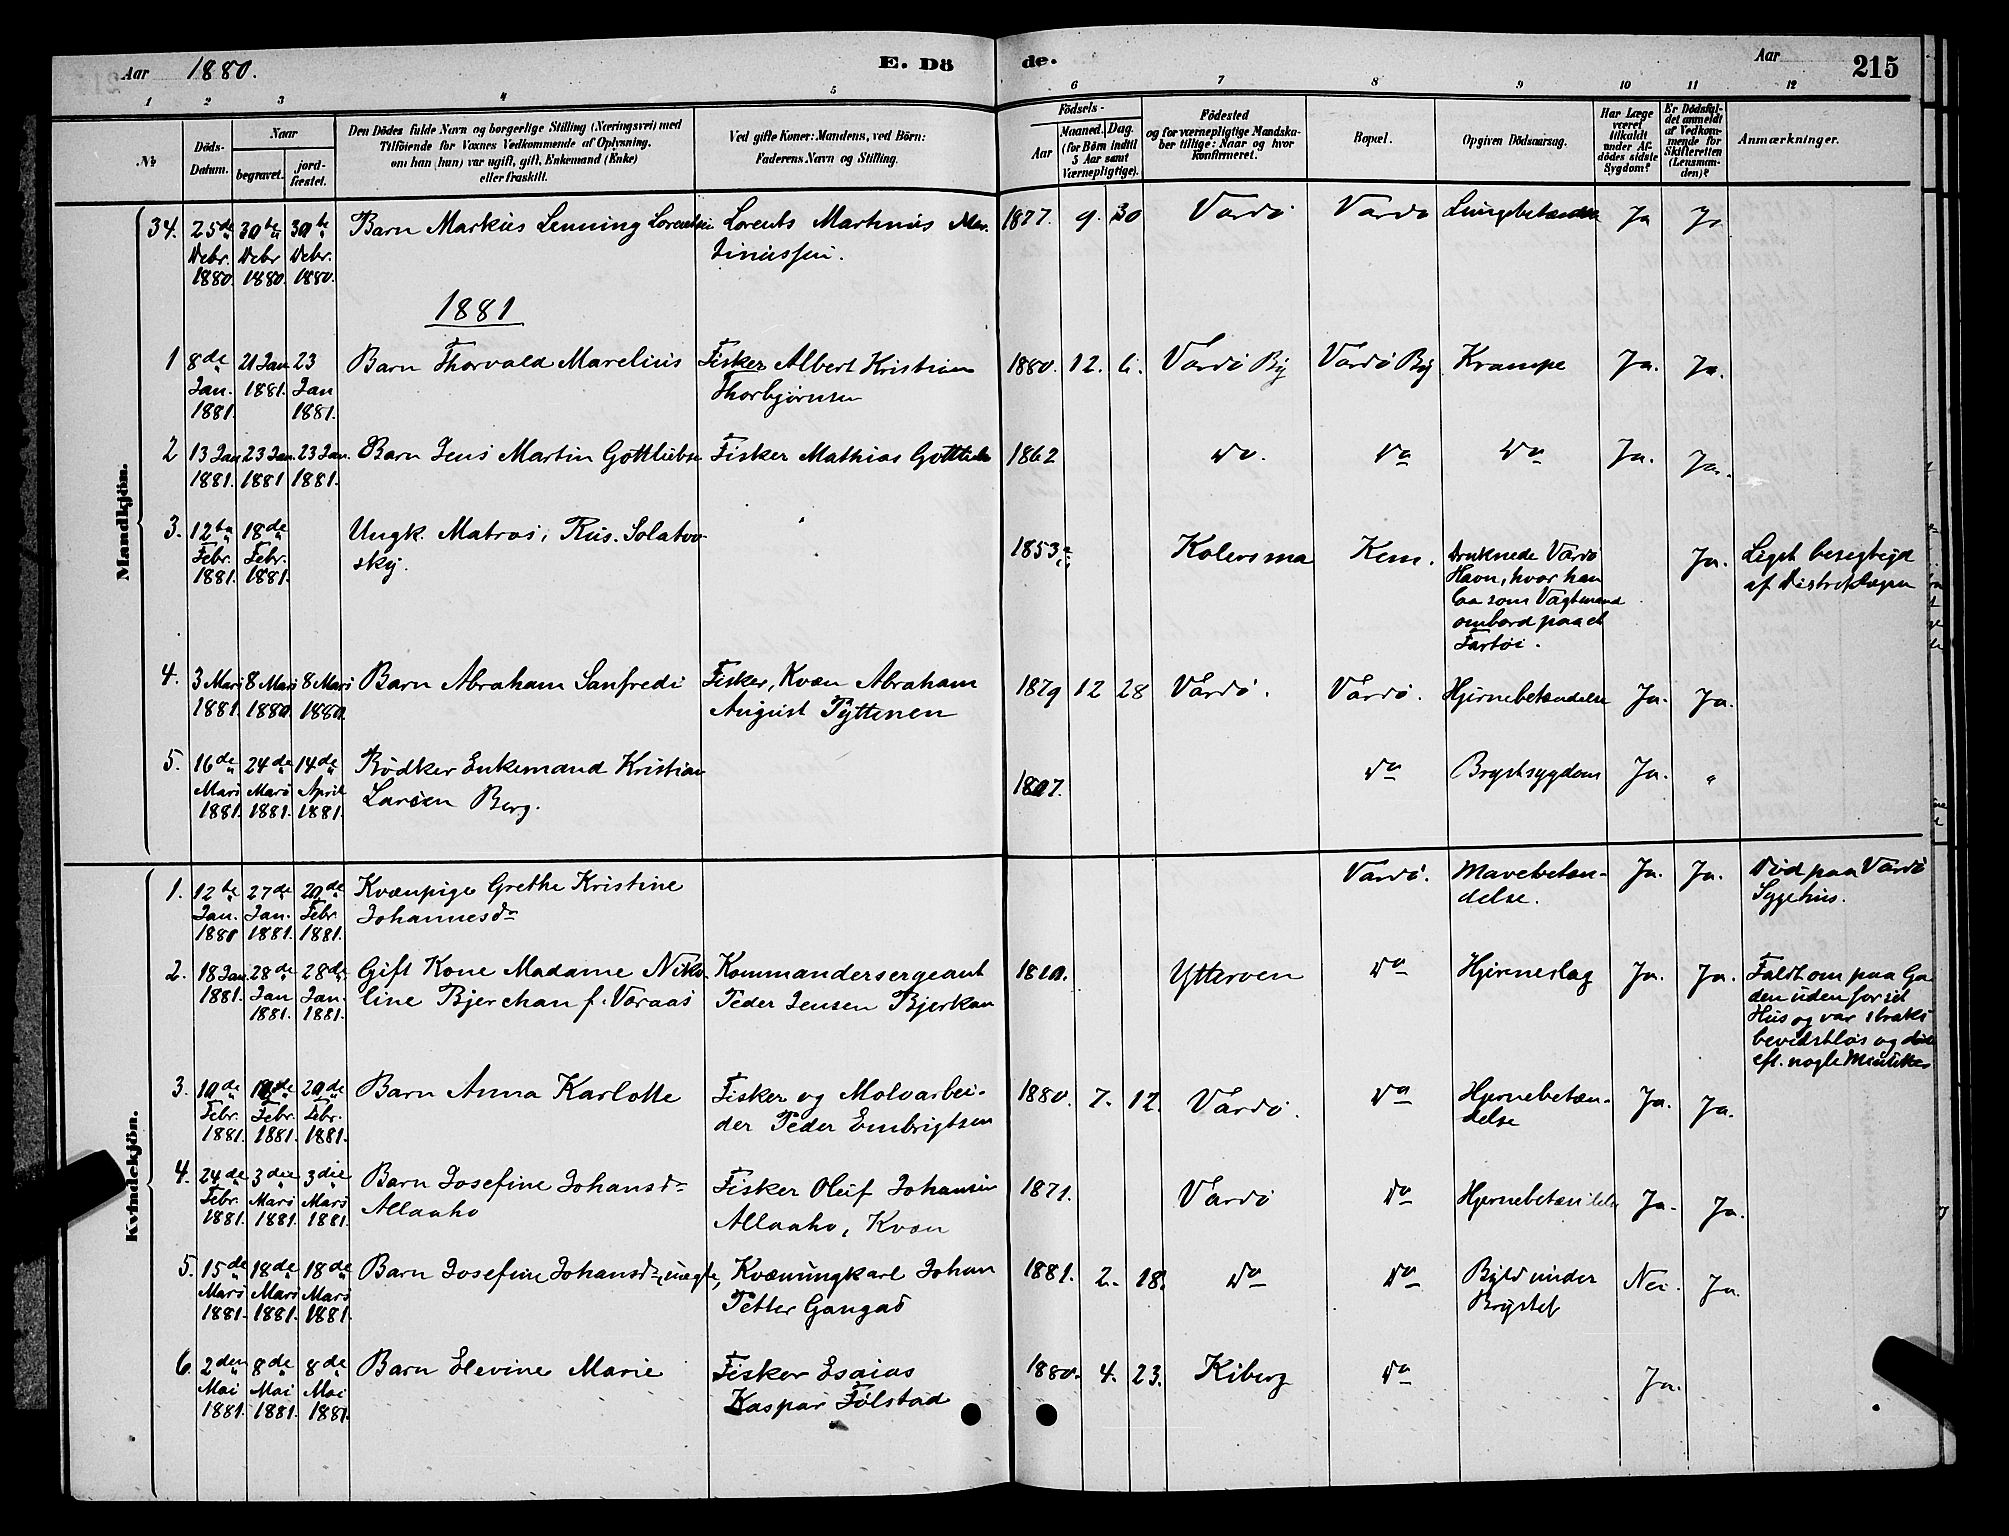 Aar 1880.
E. Dö
de.
Aar
215
1 2 3 4 5 6 7 8 9 10 11 12
№
Döds-
Datum.
Naar
begravet.
jord-
fæstet.
Den Dödes fulde Navn og borgerlige Stilling (Næringsvei) med
Tilföiende for Voxnes Vedkommende af Oplysning,
om han (hun) var ugift, gift, Enkemand (Enke)
eller fraskilt.
Ved gifte Koner: Mandens, ved Börn:
Faderens Navn og Stilling.
Födsels-
Aar
Maaned. Dag.
(for Börn indtil
5 Aar samt
Værnepligtige).
Födested
og for værnepligtige Mandska-
ber tillige: Naar og hvor
konfirmeret.
Bopæl.
Opgiven Dödsaarsag.
Har Læge
været
tilkaldt
under Af-
dödes sidste
Sygdom?
Er Dödsfal-
det anmeldt
af Vedkom-
mende for
Skifteretten
(Lensman-
den)?
Anmærkninger.
Mandkjön.
34. 25de 30te 30te Barn Markus Lenning Lorentsen Lorents Martinus Mar- 1877. 9. 30 Vardö Vardö Lungebetændelse Ja Ja
Debr. Debr. Debr. tinussen.
1880. 1880. 1880.
1881
1 8de 21 Jan 23 Barn Thorvald Marelius Fisker Albert Kristian 1880. 12. 6. Vardö By Vardö By Krampe Ja. Ja.
Jan. 1881. Jan Thorbjørnsen
1881. 1881.
2 13 Jan 23 Jan. 23 Jan. Barn Jens Martin Gottliebsen Fisker Mathias Gottlieb 1862 do. do do Ja. Ja.
1881. 1881 1881.
3. 12te 18de Ungk. Matros, Rus. Solatov- 1853 Kolersma Kem. Druknede Vardö Ja. Liget besigtiget
Febr. Febr. sky. Havn, hvor han af Distriktslægen
1881. 1881. laa som Vagtmand
ombord paa et
Fartöi.
4. 3 Mars 8 Mars 8 Mars Barn Abraham Sanfredi Fisker, Kvæn Abraham 1879 12 28 Vardö. Vardö. Hjernebetændelse Ja. Ja.
1881. 1880. 1880. August Pyttinen
5. 16de 24de 14de Bødker Enkemand Kristian 1807. do Brystsygdom Ja. "
Mars Mars April Larsen Berg.
1881. 1881. 1881.
Kvindekjön.
1. 12te 27de 20de Kvænpige Grethe Kristine Vardö. Mavebetæn- Ja. Ja. Död paa Vardö
Jan. Jan. Febr. Johannesdr delse. Sygehus.
1880 1881. 1881.
2. 18 Jan. 28de 28de Gift Kone Madame Niko- Kommandersergeant Ytterøen do Hjerneslag Ja. Ja. Faldt om paa Ga-
1881. Jan Jan. line Bjerchan f. Væraas Peder Jensen Bjerkan den uden for sit
1881. 1881. Hus og var straks
bevidstløs og døde
eft. nogle Minutter
3. 10de 19de 20de Barn Anna Karlotte Fisker og Moloarbei- 1880. 7. 12. Vardö. do Hjernebetæn- Ja. Ja.
Febr. Febr. Febr. der Peder Embrigtsen delse
1881. 1881. 1881.
4. 24de 3die 3die Barn Josefine Johansdr Fisker Oluf Johansen 1871. Vardö do Hjernebetændelse Ja. Ja.
Febr. Mars Mars Allaaho Allaaho, Kvæn
1881. 1881. 1881.
5. 15de 18de 18de Barn Josefine Johansdr, uægte, Kvænungkarl Johan 1881. 2. 18. do do Byld under Nei. Ja.
Mars Mars Mars Petter Gangas Brystet
1881. 1881. 1881.
6. 2den 8de 8de Barn Elevine Marie Fisker Esaias 1880. 4. 23. Kiberg do Ja.
Mai Mai Mai Kaspar Følstad
1881. 1881. 1881.